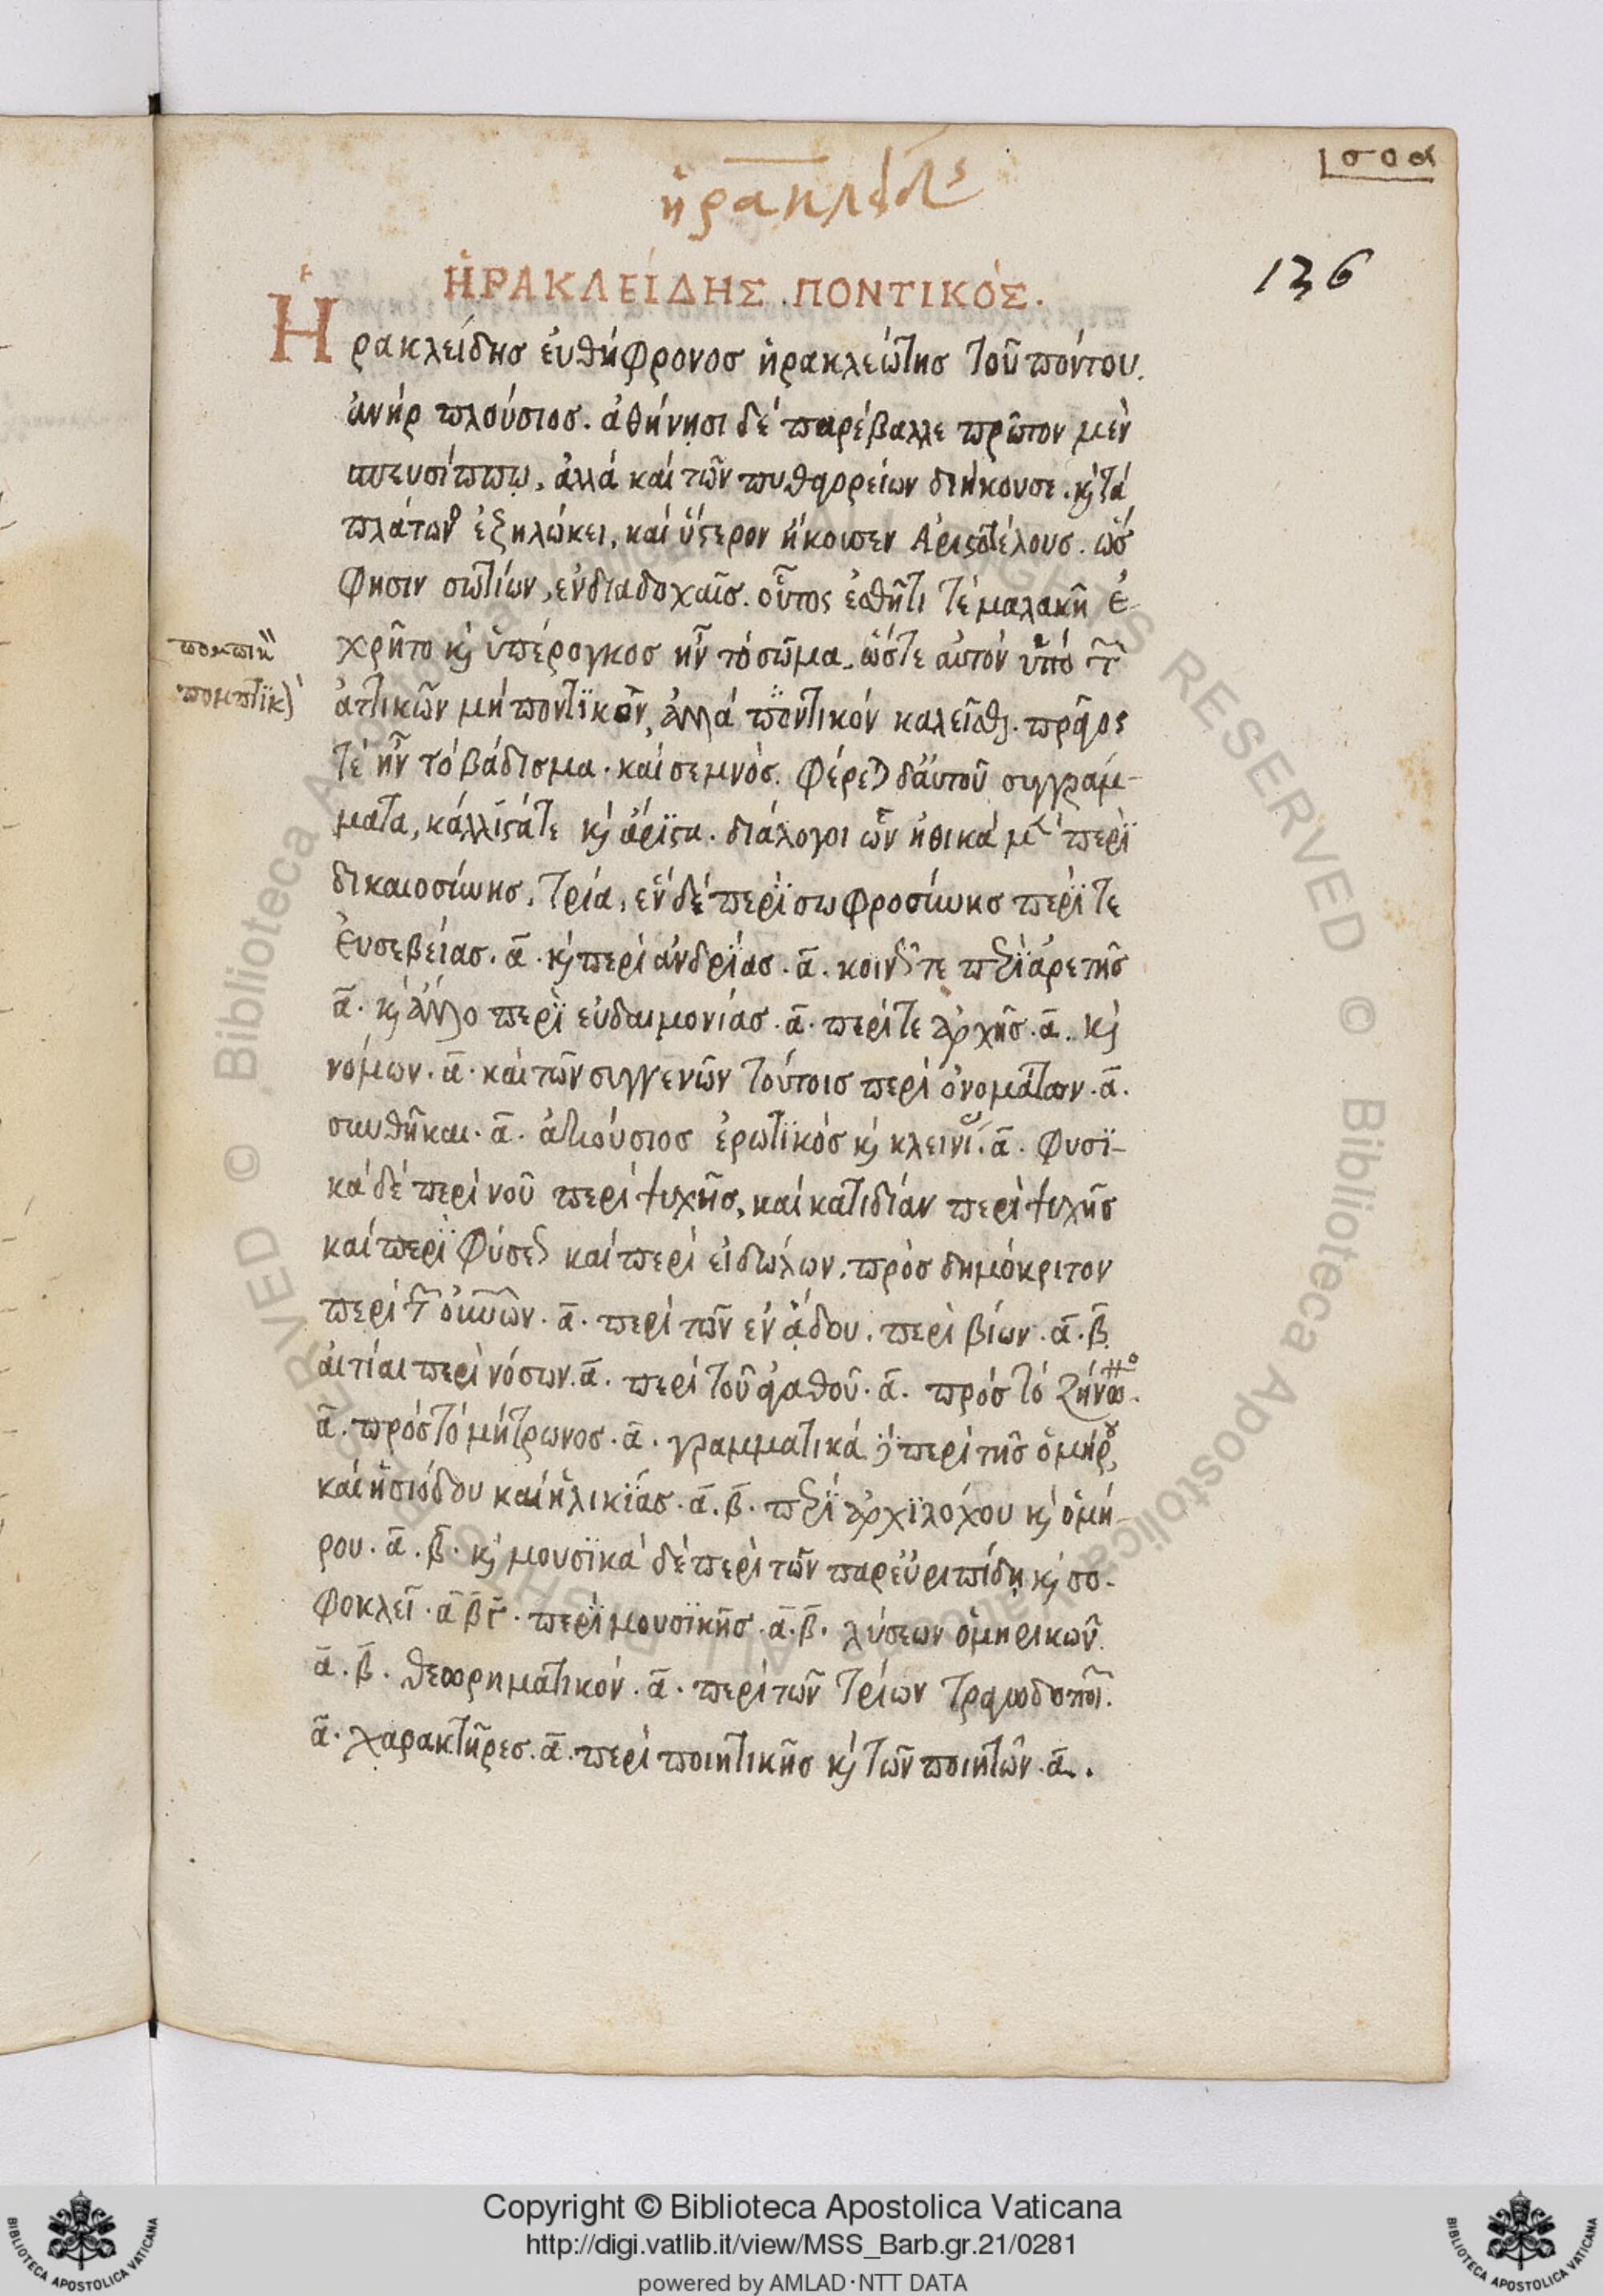 ἡρακλείδης
ἩΡΑΚΛΕΊΔΗΣ ΠΟΝΤΙΚΌΣ.
136
Ἡρακλείδησ ἐυθήφρονοσ ἡρακλεώτησ τοῦ πόντου.
ἀνήρ πλούσιοσ. ἀθήνησι δέ παρέβαλλε πρῶτον μέν
πευσίππῳ, ἀλλά καί τῶν πυθαρρείων διήκουσε. κ τά
πλάτωνο ἐξηλώκει, καί ὕστερον ἤκουσεν Ἀριστοτέλουσ. ὥσ
φησιν σωτίων, ἐν διαδοχαῖσ. οὗτος ἐσθῆτι τέ μαλακῆ ἐ-
χρῆτο κ ὑπέρογκοσ ἦν τό σῶμα, ὥστε αὐτόν ὑπό τ
ἀττικῶν μή ποντϊκόν, ἀλλά πόντικόν καλεῖσθ. πρᾶος
τέ ἦν τό βάδισμα. καί σεμνόσ. φέρε δ' ἀυτοῦ συγγράμ-
ματα, κάλλϊστά τε κ ἄρϊστα. διάλογοι ὧν ἠθικά μ περϊ
δικαιοσύνησ, τρία, ἕν δέ περϊ σωφροσύνησ περϊ τε
ἐυσεβείασ. α. κ περί ἀνδρϊάσ. α. κοινς τε πϊ ἀρετῆσ
α. κ ἄλλο περϊ εὐδαιμονίασ. α. περί τε ἀρχῆσ. α. κ
νόμων. α. καί τῶν συγγενῶν τούτοισ περί ὀνομάτων. α.
συνθῆκαι. α. ἀκούσιοσ ἐρωτϊκόσ κ κλεινί. α. φυσϊ-
κά δέ περί νοῦ περί ψυχῆσ, καί κατιδίαν περί ψυχῆσ
καί περϊ φύσε καί περί εἰδώλων. πρόσ δημόκριτον
περί τ ὀυνῶν. α. περί τῶν ἐν ἅδου. περί βίων. α. β.
ἀιτίαι περί νόσων. α. περί τοῦ ἀγαθοῦ. α. πρόσ τό ζήνωο.
α. πρόσ τό μήτρωνοσ. α. γραμματικά περί τῆσ ὁμήρου,
καί ἡσιόδου καί ἡλικϊάσ. α. β. πϊ ἀρχϊλόχου κ ὁμή-
ρου. α. β. κ μουσϊκά δέ περί τῶν παρευριπίδῃ κ σο-
φοκλεῖ. α β γ. περϊ μουσϊκῆσ. α. β. λύσεων ὁμηρικῶν
α. β. θεωρηματικόν. α. περί τῶν τρίων τραγωδοποι.
α. χαρακτῆρεσ. α. περί ποιητικῆσ κ τῶν ποιητῶν. α.
Copyright © Biblioteca Apostolica Vaticana
http://digi.vatlib.it/view/MSS_Barb.gr.21/0281
powered by AMLAD·NTT DATA
BIBLIOTECA APOSTOLICA VATICANA
BIBLIOTECA APOSTOLICA VATICANA